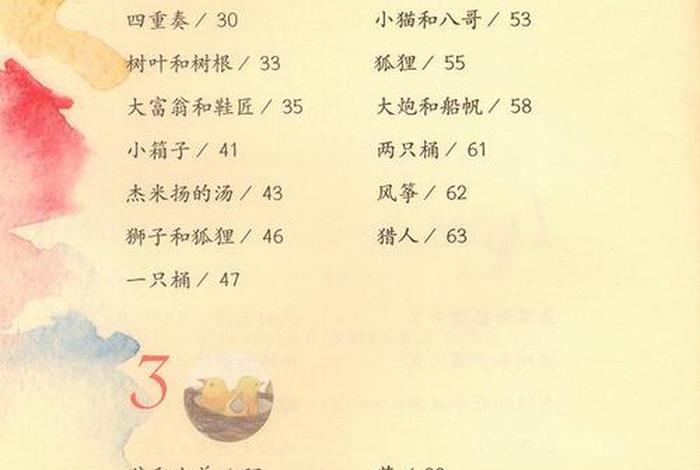 四重奏 / 30
树叶和树根 / 33
大富翁和鞋匠 / 35
小箱子 / 41
杰米扬的汤 / 43
狮子和狐狸 / 46
一只桶 / 47
小猫和八哥 / 53
狐狸 / 55
大炮和船帆 / 58
两只桶 / 61
风筝 / 62
猎人 / 63
3